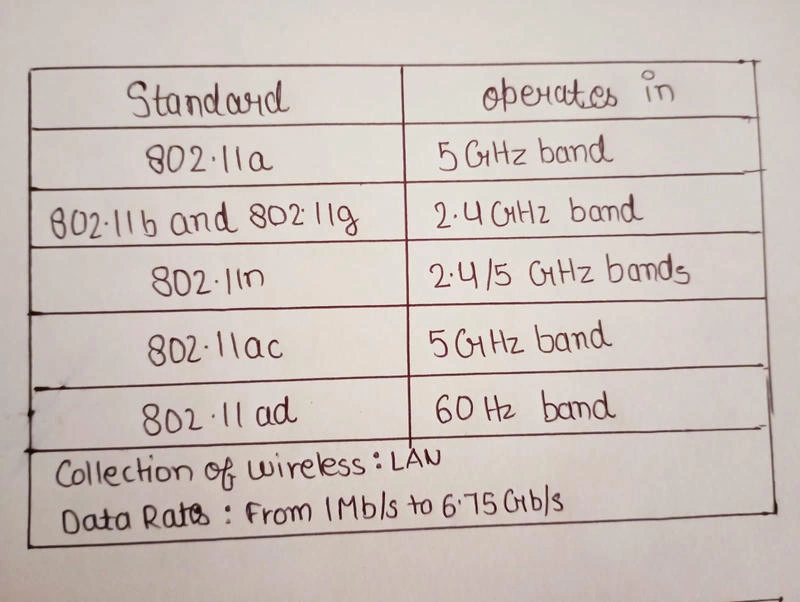 Standard operates in
802.11a 5 GHz band
802.11b and 802.11g 2.4 GHz band
802.11n 2.4/5 GHz bands
802.11ac 5 GHz band
802.11 ad 60 Hz band
Collection of wireless : LAN
Data Rates : From 1 Mb/s to 6.75 Gb/s